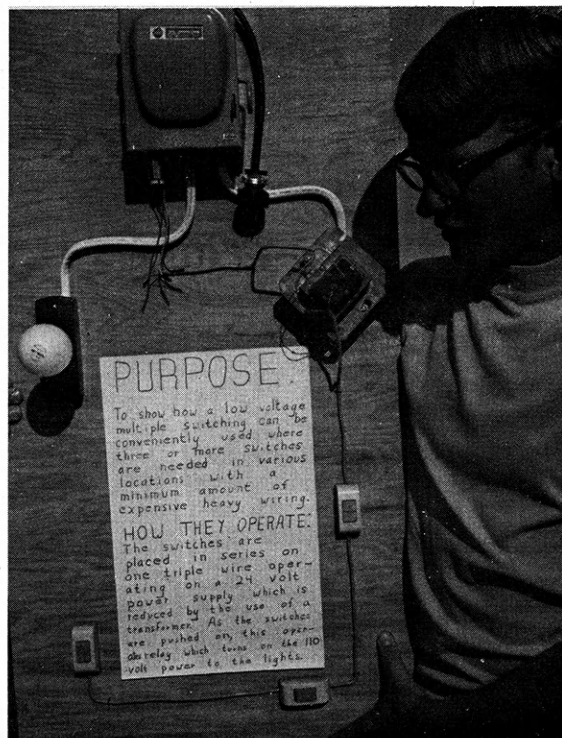 PURPOSE:
To show how a low voltage
multiple switching can be
conveniently used where
three or more switches
are needed in various
locations with a
minimum amount of
expensive heavy wiring.
HOW THEY OPERATE:
The switches are
placed in series on
one triple wire oper-
ating on a 24 volt
power supply which is
reduced by the use of a
transformer. As the switches
are pushed on, this oper-
ates relay which turns on the 110
volt power to the lights.